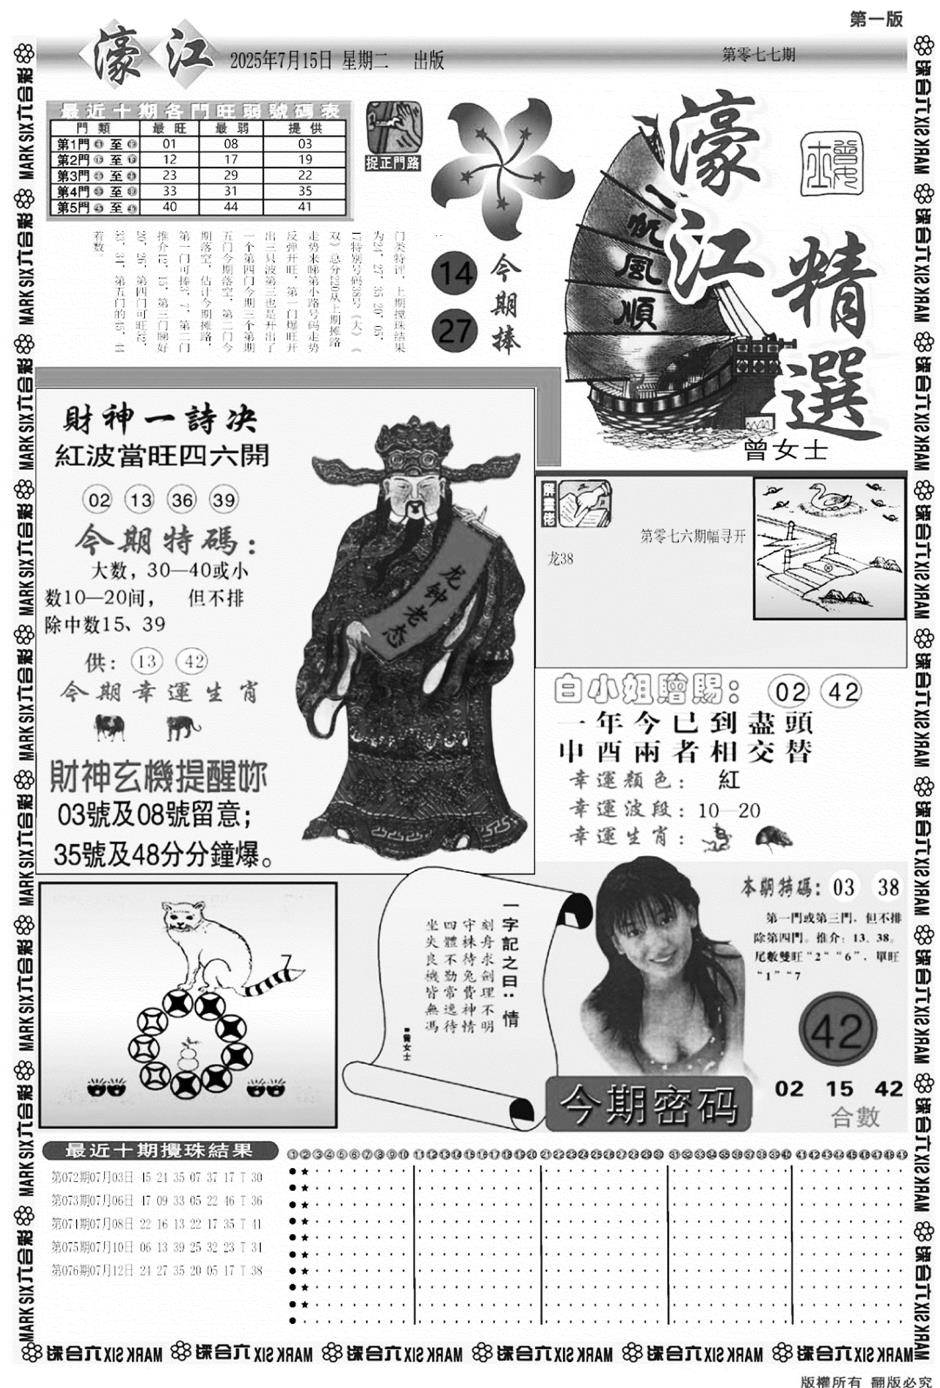 第一版
濠江
2025年7月15日 星期二 出版
第零七七期
最近十期各門旺弱號碼表
門類 最旺 最弱 提供
第1門 至 01 08 03
第2門 至 12 17 19
第3門 至 23 29 22
第4門 至 33 31 35
第5門 至 40 44 41
捉正門路
14
27
今期捧
一帆風順
濠江
精選
曾女士
财神一詩决
紅波當旺四六開
02 13 36 39
今期特碼：
大数，30—40或小
数10—20间， 但不排
除中数15、39
供： 13 42
今期幸運生肖
財神玄機提醒妳
03號及08號留意；
35號及48分分鐘爆。
龙钟老态
第零七六期幅寻开
龙38
白小姐贈賜： 02 42
一年今已到盡頭
申酉兩者相交替
幸運顏色： 紅
幸運波段：10—20
幸運生肖：
7
一字記之曰：情
刻舟求劍理不明
守株待兔費神情
四體不勤常逸待
坐失良機皆無馮
■曾女士
今期密码
本期特碼：03 38
第一門或第三門，但不排
除第四門。推介：13、38。
尾數雙旺“2“ “6”，單旺
“1” “7
42
02 15 42
合數
最近十期攪珠結果
第072期07月03日 45 24 35 07 37 17 T 30
第073期07月06日 47 09 33 05 22 46 T 36
第074期07月08日 22 16 13 22 17 35 T 41
第075期07月10日 06 13 39 25 32 23 T 34
第076期07月12日 24 27 35 20 05 17 T 38
MARK SIX六合彩
版權所有 翻版必究